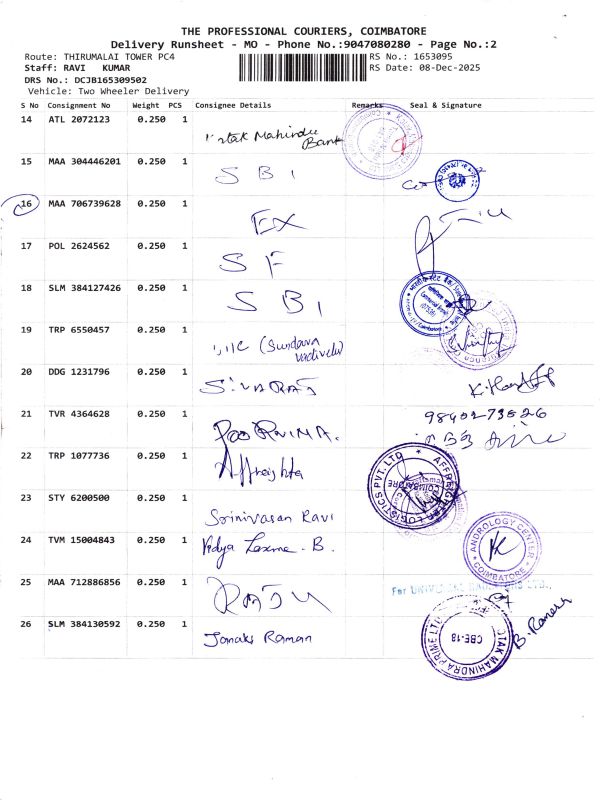 THE PROFESSIONAL COURIERS, COIMBATORE
Delivery Runsheet - MO - Phone No.:9047080280 - Page No.:2
Route: THIRUMALAI TOWER PC4 RS No.: 1653095
Staff: RAVI KUMAR RS Date: 08-Dec-2025
DRS No.: DCJB165309502
Vehicle: Two Wheeler Delivery
S No Consignment No Weight PCS Consignee Details Remarks Seal & Signature
14 ATL 2072123 0.250 1 Kotak Mahindra
Bank
15 MAA 304446201 0.250 1 SBI
16 MAA 706739628 0.250 1 EX
17 POL 2624562 0.250 1 SF
18 SLM 384127426 0.250 1 SBI
19 TRP 6550457 0.250 1 (Sundara
Vadivelu)
20 DDG 1231796 0.250 1 SIVARAJ
21 TVR 4364628 0.250 1 POORNIMA.
22 TRP 1077736 0.250 1 Affreighta AFFREIGHTA LOGISTICS PVT. LTD COIMBATORE
23 STY 6200500 0.250 1 Srinivasan Ravi
24 TVM 15004843 0.250 1 Vidya Laxme. B. ANDROLOGY CENTER COIMBATORE
25 MAA 712886856 0.250 1 RAJU For
26 SLM 384130592 0.250 1 Janaki Raman KOTAK MAHINDRA PRIME LTD CBE-18 B. Ramesh